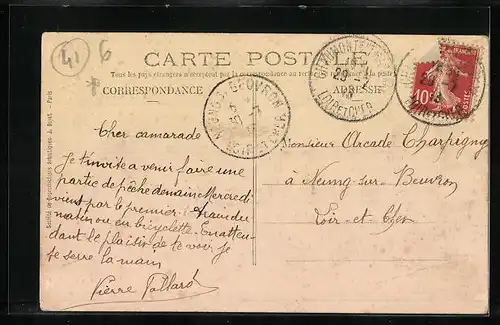 41 6
CARTE POSTALE
Tous les pays étrangers n'acceptent pas la correspondance au recto
CORRESPONDANCE
ADRESSE
CHAUMONT
LOIR-ET-CHER
NEUNG-S-BEUVRON
LOIR-ET-CHER
10
Société de Reproductions Artistiques - Paris
Cher camarade
Je t'invite a venir faire une
partie de pêche demain Mercredi
vient par le premier train du
matin ou en bicyclette. En atten-
dant le plaisir de te voir je
te serre la main
Pierre
Monsieur Arcade Charpigny
à Neung-sur-Beuvron
Loir-et-Cher